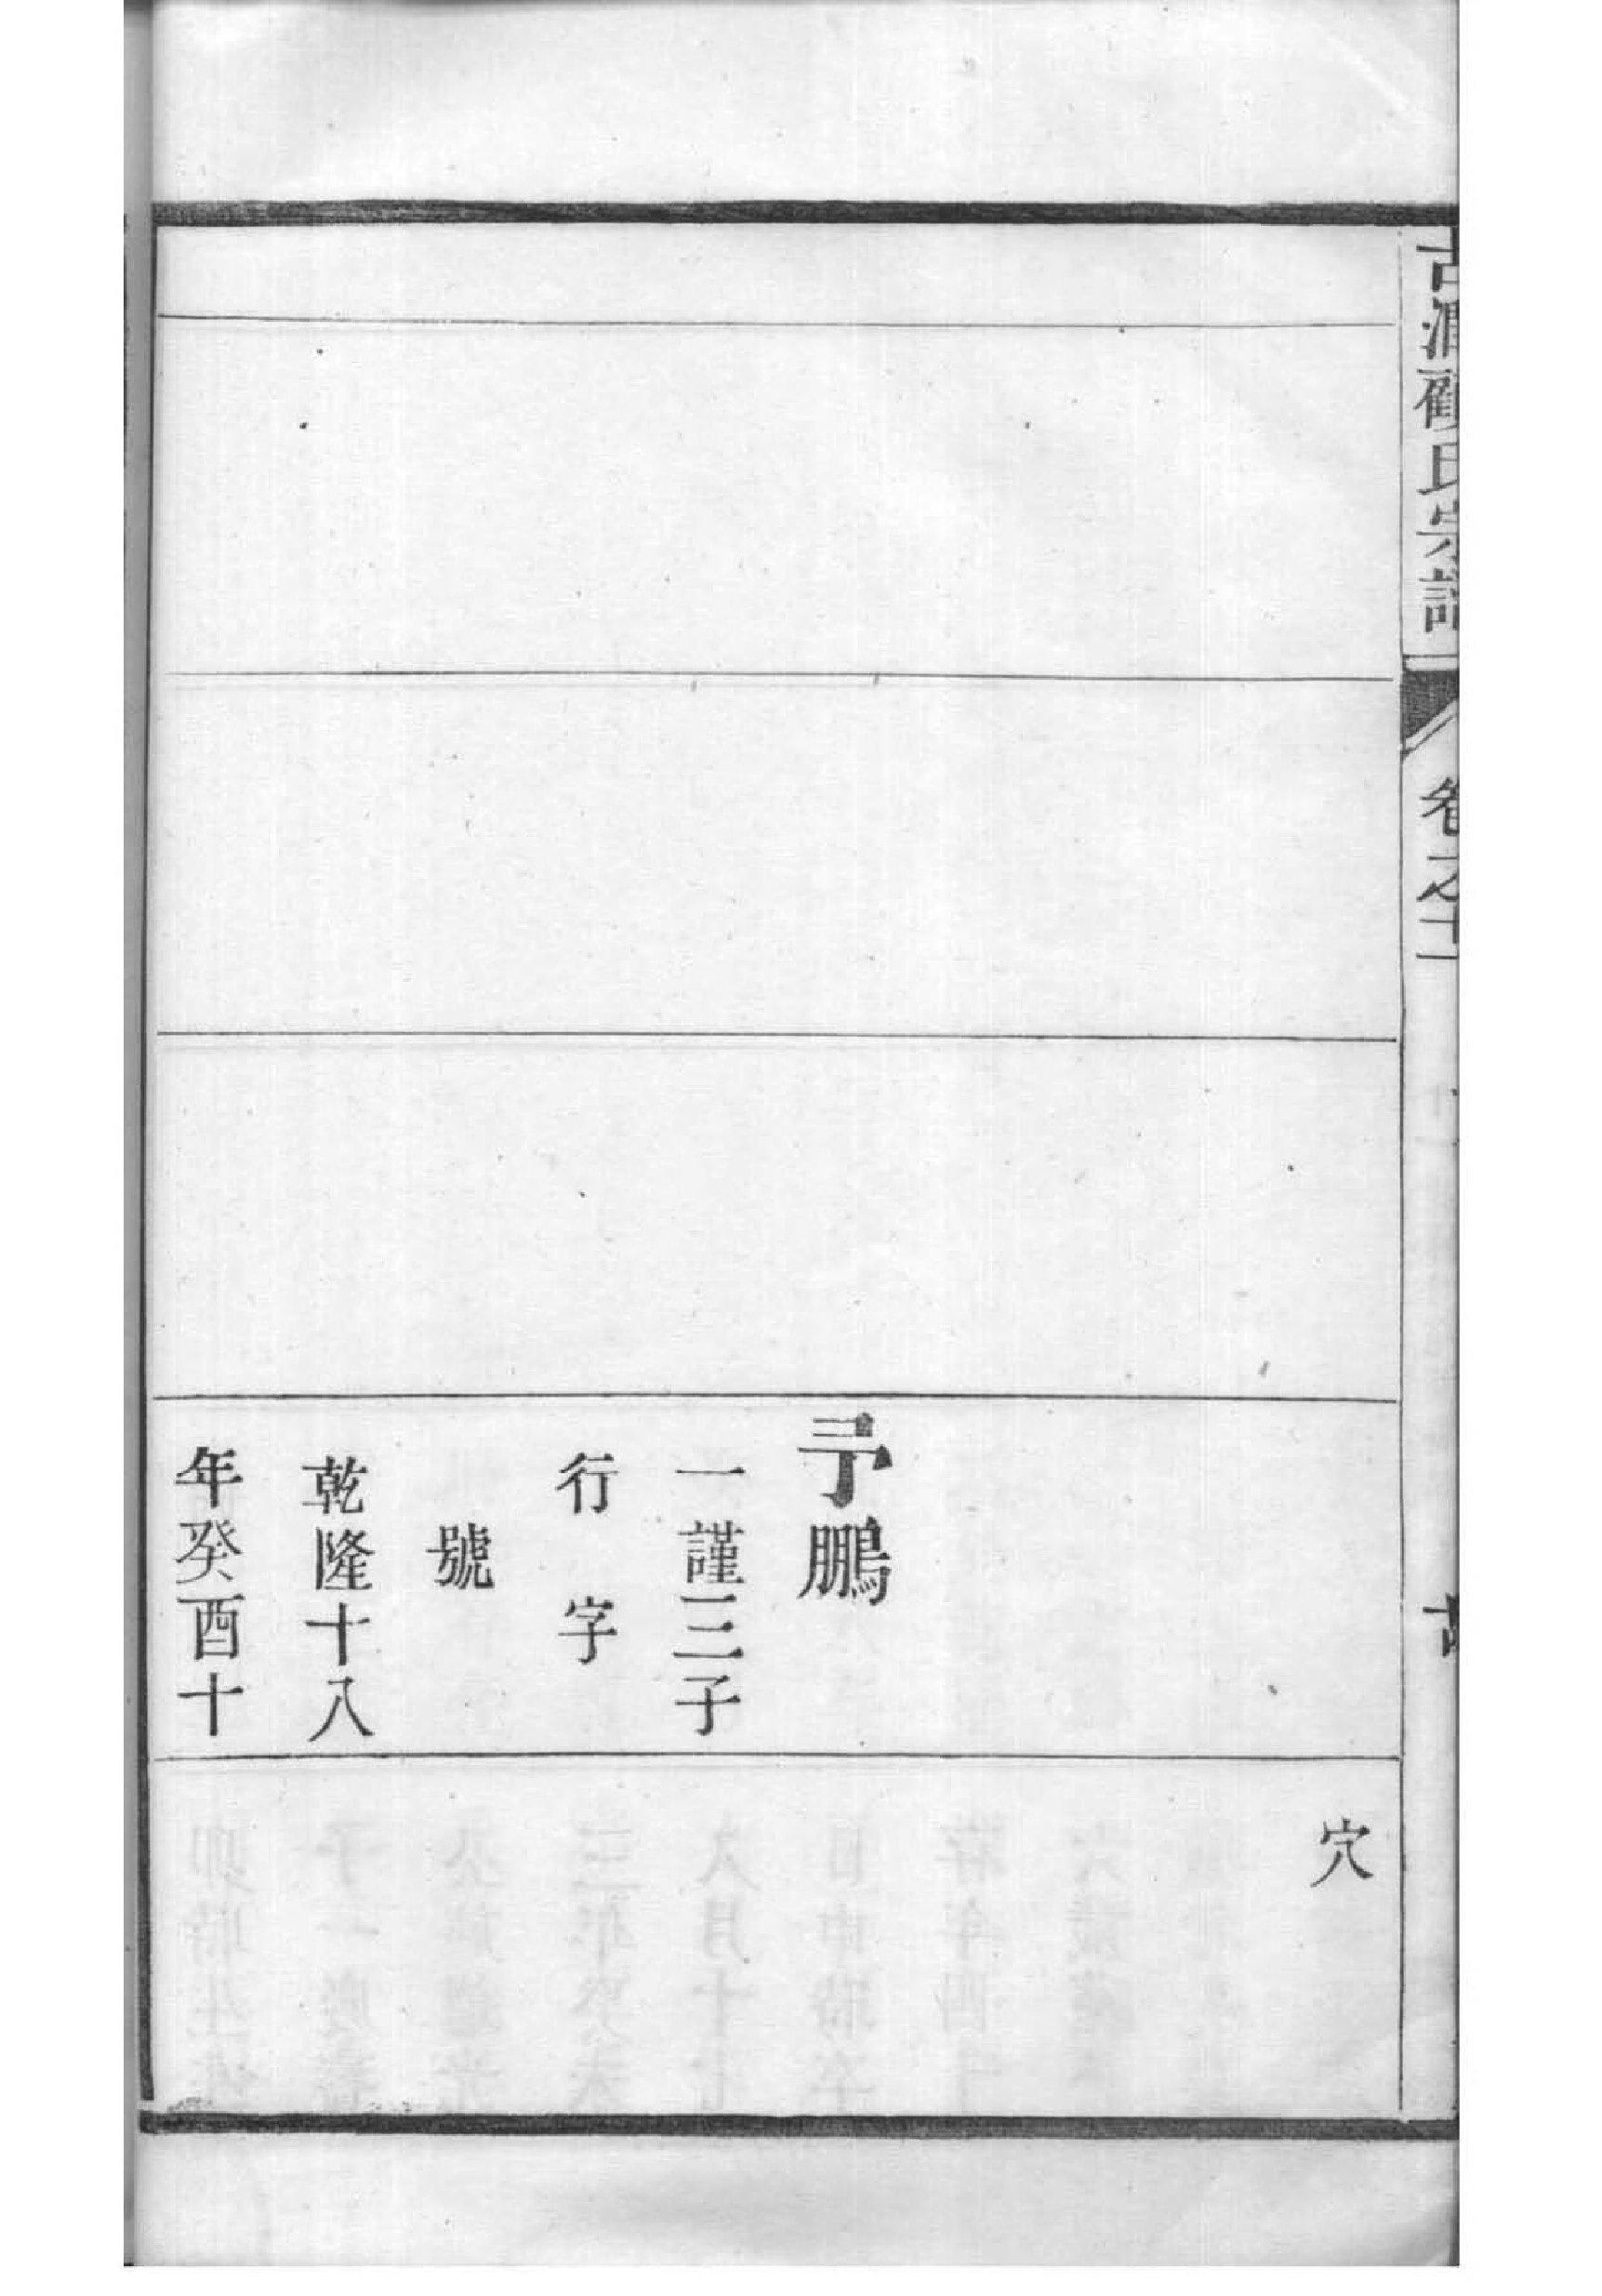 古潤顧氏宗譜
卷之十一
予鵬
一謹三子
行 字
號
乾隆十八
年癸酉十
穴